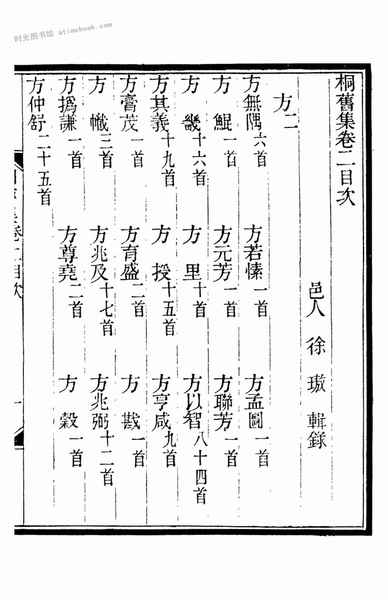 时光图书馆 atimebook.com
桐舊集卷二目次
邑人 徐璈 輯錄
方二
方無隅六首 方若愫一首 方孟圖一首
方鯤一首 方元芳一首 方聯芳一首
方畿十六首 方里十首 方以智八十四首
方其義十九首 方授十五首 方亨咸九首
方膏茂一首 方育盛二首 方戡一首
方幟三首 方兆及十七首 方兆弼十二首
方撝謙一首 方尊堯二首 方穀一首
方仲舒二十五首